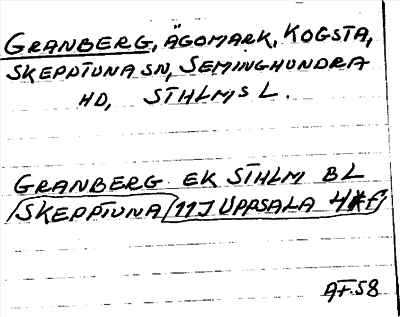 GRANBERG, ÄGOMARK, KOGSTA,
SKEPPTUNA SN, SEMINGHUNDRA
HD, STHLMS L.
GRANBERG EK STHLM BL
SKEPPTUNA 11J UPPSALA 4 f
AF58